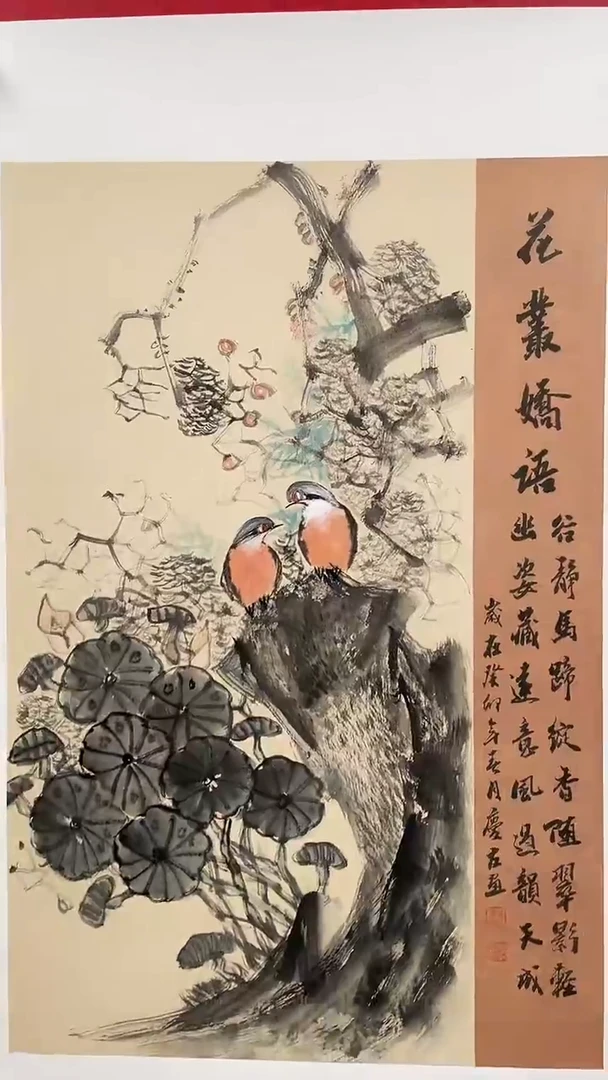 花叢嬌語
谷靜馬蹄綻香隨翠影輕
幽姿藏遠意風過韻天成
歲在癸卯年春月慶古画